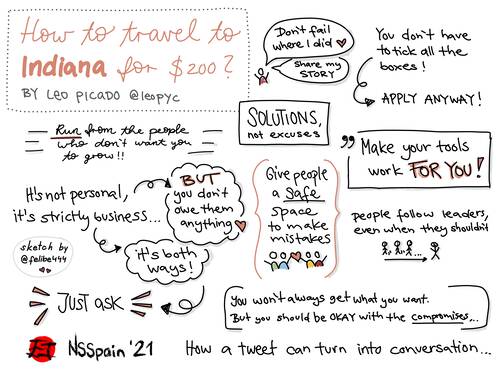 How to travel to
Indiana for $200?
BY LEO PICADO @leopyc
Don't fail
where I did
share my
STORY
You don't have
to tick all the
boxes!
APPLY ANYWAY!
SOLUTIONS,
not excuses
Run from the people
who don't want you
to grow!!
Make your tools
work FOR YOU!
It's not personal,
it's strictly business...
BUT
you don't
owe them
anything
it's both
ways!
Give people
a safe
space
to make
mistakes
people follow leaders,
even when they shouldn't
sketch by
@felibe444
JUST ASK
You won't always get what you want.
But you should be OKAY with the compromises...
NSSpain '21
How a tweet can turn into conversation...